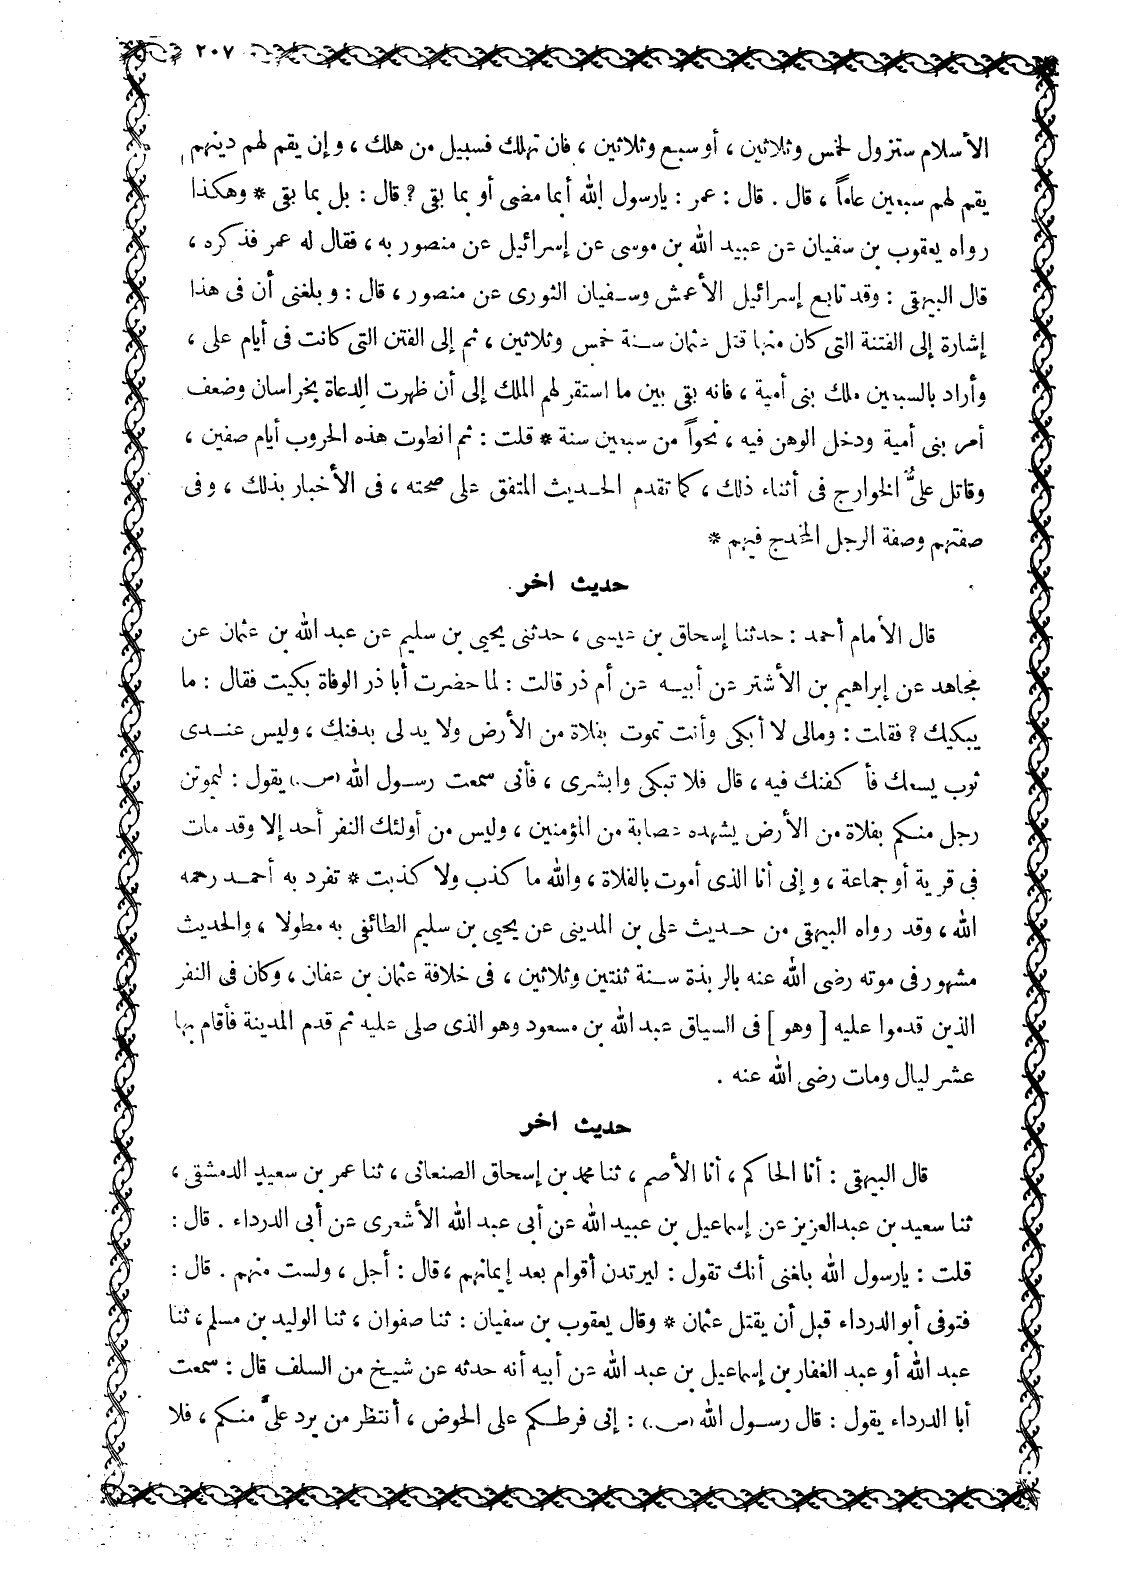 ٢٠٧
الأسلام ستزول لخمس وثلاثين ، أو سبع وثلاثين ، فان تهلك فسبيل من هلك ، وإن يقم لهم دينهم
يقم لهم سبعين عاماً ، قال . قال : عمر : يارسول الله أبما مضى أو بما بقى ? قال : بل بما بقى * وهكذا
رواه يعقوب بن سفيان عن عبيد الله بن موسى عن إسرائيل عن منصور به ، فقال له عمر فذكره ،
قال البيهقى : وقد تابع إسرائيل الأعمش وسفيان الثورى عن منصور ، قال : و بلغنى أن فى هذا
إشارة إلى الفتنة التى كان منها قتل عثمان سنة خمس وثلاثين ، ثم إلى الفتن التى كانت فى أيام على ،
وأراد بالسبعين ملك بنى أمية ، فانه بقى بين ما استقر لهم الملك إلى أن ظهرت الدعاة بخراسان وضعف
أمر بنى أمية ودخل الوهن فيه ، نحواً من سبعين سنة * قلت : ثم انطوت هذه الحروب أيام صفين ،
وقاتل علىٌّ الخوارج فى أثناء ذلك ، كما تقدم الحديث المتفق على صحته ، فى الأخبار بذلك ، وفى
صفتهم وصفة الرجل المخدج فيهم *
حديث اخر
قال الأمام أحمد : حدثنا إسحاق بن عيسى ، حدثنى يحيى بن سليم عن عبد الله بن عثمان عن
مجاهد عن إبراهيم بن الأشتر عن أبيه عن أم ذر قالت : لما حضرت أبا ذر الوفاة بكيت فقال : ما
يبكيك ? فقلت : ومالى لا أبكى وأنت تموت بفلاة من الأرض ولا يد لى بدفنك ، وليس عندى
ثوب يسعك فأ كفنك فيه ، قال فلا تبكى وابشرى ، فأنى سمعت رسول الله (ص.) يقول : ليموتن
رجل منكم بفلاة من الأرض يشهده عصابة من المؤمنين ، وليس من أولئك النفر أحد إلا وقد مات
فى قرية أو جماعة ، و إنى أنا الذى أموت بالفلاة ، والله ما كذب ولا كذبت * تفرد به أحمد رحمه
الله ، وقد رواه البيهقى من حديث على بن المدينى عن يحيى بن سليم الطائفى به مطولا ، والحديث
مشهور فى موته رضى الله عنه بالربذة سنة ثنتين وثلاثين ، فى خلافة عثمان بن عفان ، وكان فى النفر
الذين قدموا عليه [ وهو ] فى السياق عبد الله بن مسعود وهو الذى صلى عليه ثم قدم المدينة فأقام بها
عشر ليال ومات رضى الله عنه .
حديث اخر
قال البيهقى : أنا الحا كم ، أنا الأصم ، ثنا محمد بن إسحاق الصنعانى ، ثنا عمر بن سعيد الدمشقى ،
ثنا سعيد بن عبدالعزيز عن إسماعيل بن عبيد الله عن أبى عبد الله الأشعرى عن أبى الدرداء . قال :
قلت : يارسول الله بلغنى أنك تقول : ليرتدن أقوام بعد إيمانهم ، قال : أجل ، ولست منهم . قال :
فتوفى أبو الدرداء قبل أن يقتل عثمان * وقال يعقوب بن سفيان : ثنا صفوان ، ثنا الوليد بن مسلم ، ثنا
عبد الله أو عبد الغفار بن إسماعيل بن عبد الله عن أبيه أنه حدثه عن شيخ من السلف قال : سمعت
أبا الدرداء يقول : قال رسول الله (ص.) : إنى فرطكم على الحوض ، أنتظر من يرد علىَّ منكم ، فلا